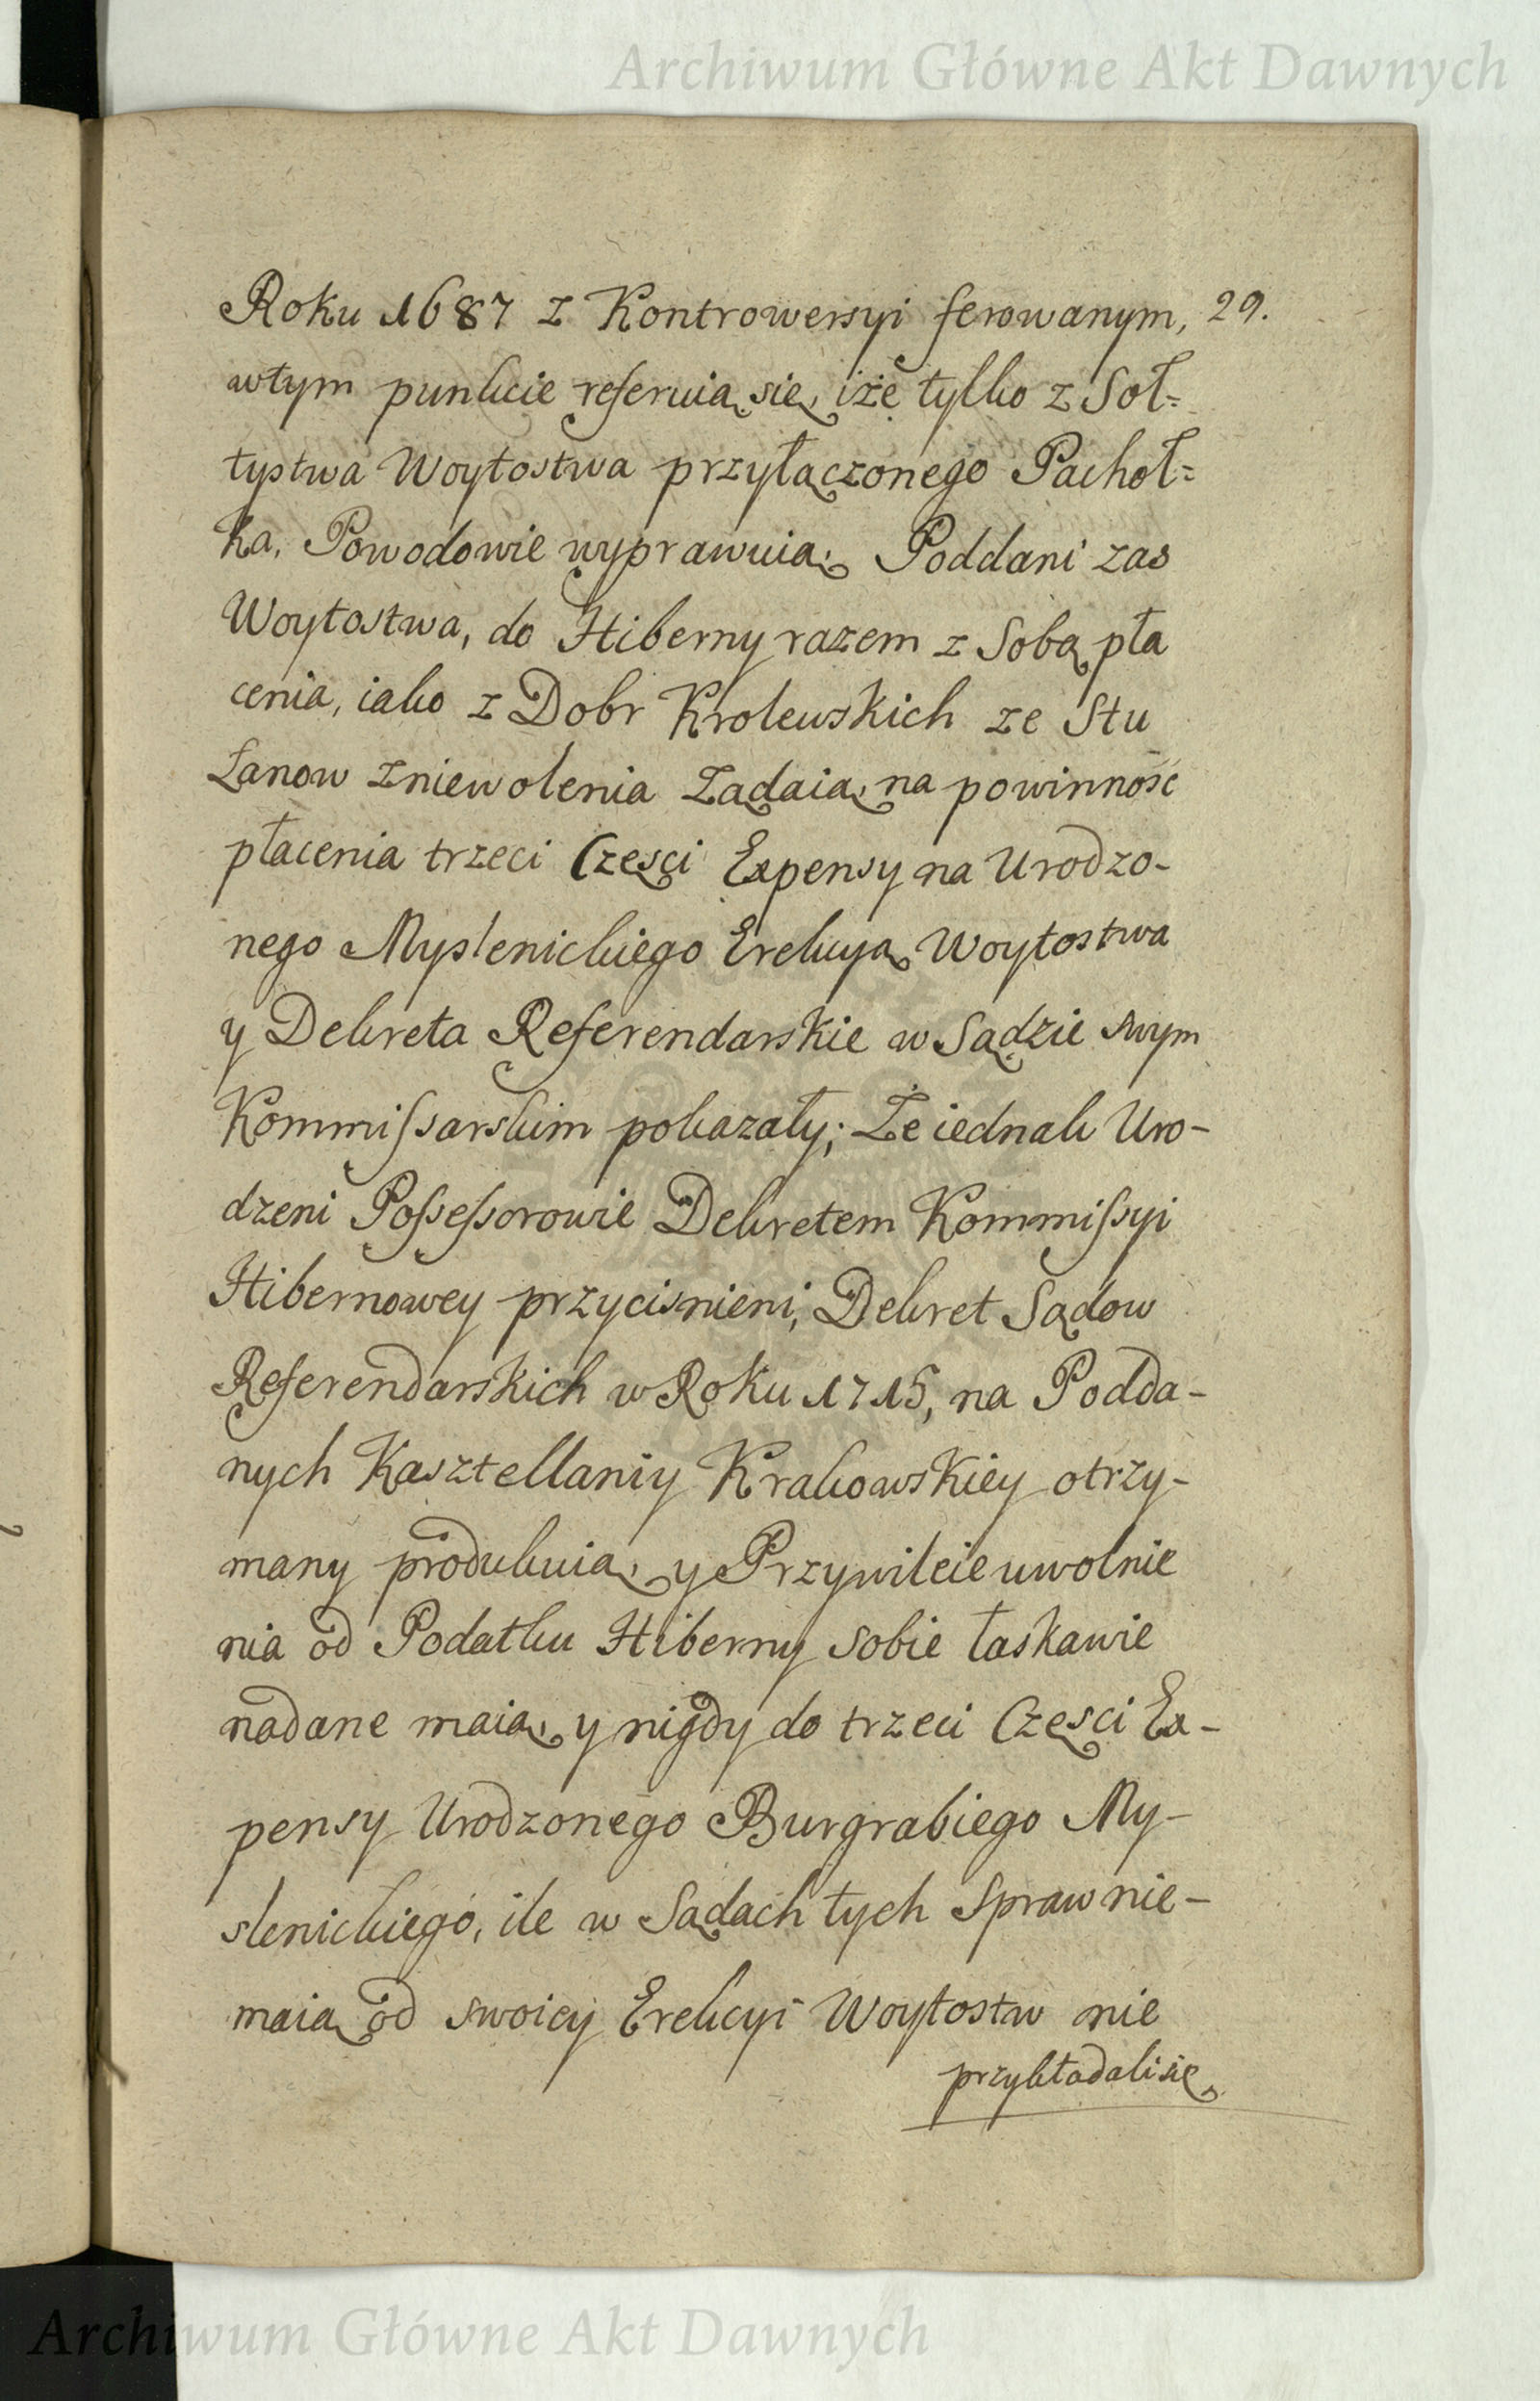 Archiwum Główne Akt Dawnych
Roku 1687 z Kontrowersyi ferowanym, 29.
wtym punkcie referuią się, iże tylko z Soł=
tystwa Woytostwa przyłączonego Pachoł=
ka, Powodowie wyprawuią. Poddani zas
Woytostwa, do Hiberny razem z Sobą pła
cenia, iako z Dobr Krolewskich ze Stu
Łanow zniewolenia Żądaią, na powinność
płacenia trzeci Częsci Expensy na Urodzo-
nego Myslenickiego Erekcyą Woytostwa
y Dekreta Referendarskie w Sądzie swym
Kommissarskim pokazały; Że iednak Uro-
dzeni Possessorowie Dekretem Kommissyi
Hibernowey przycisnieni, Dekret Sądow
Referendarskich w Roku 1715, na Podda-
nych Kasztellaniy Krakowskiey otrzy-
many produkuią, y Przywileie uwolnie
nia od Podatku Hiberny sobie łaskawie
nadane maią, y nigdy do trzeci Częsci Ex-
pensy Urodzonego Burgrabiego My-
slenickiego, ile w Sądach tych Spraw nie-
maią od swoiey Erekcyi Woytostw nie
przykładali się
Archiwum Główne Akt Dawnych